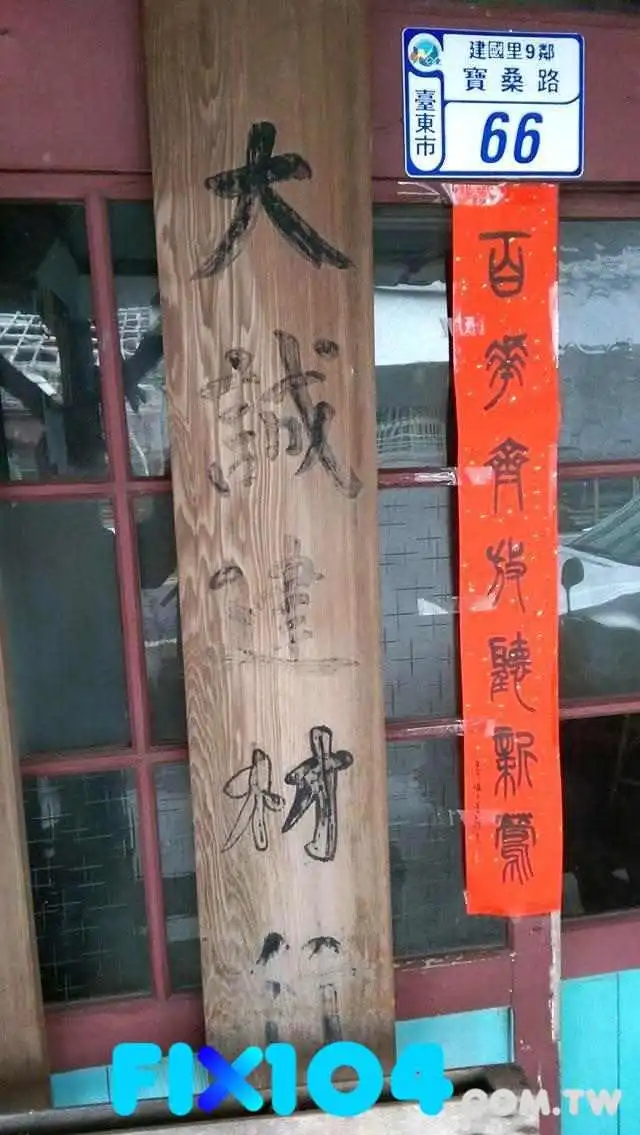 建國里9鄰
寶桑路
臺東市
66
大誠建材行
百花齊放聽新鶯
FIX104.COM.TW